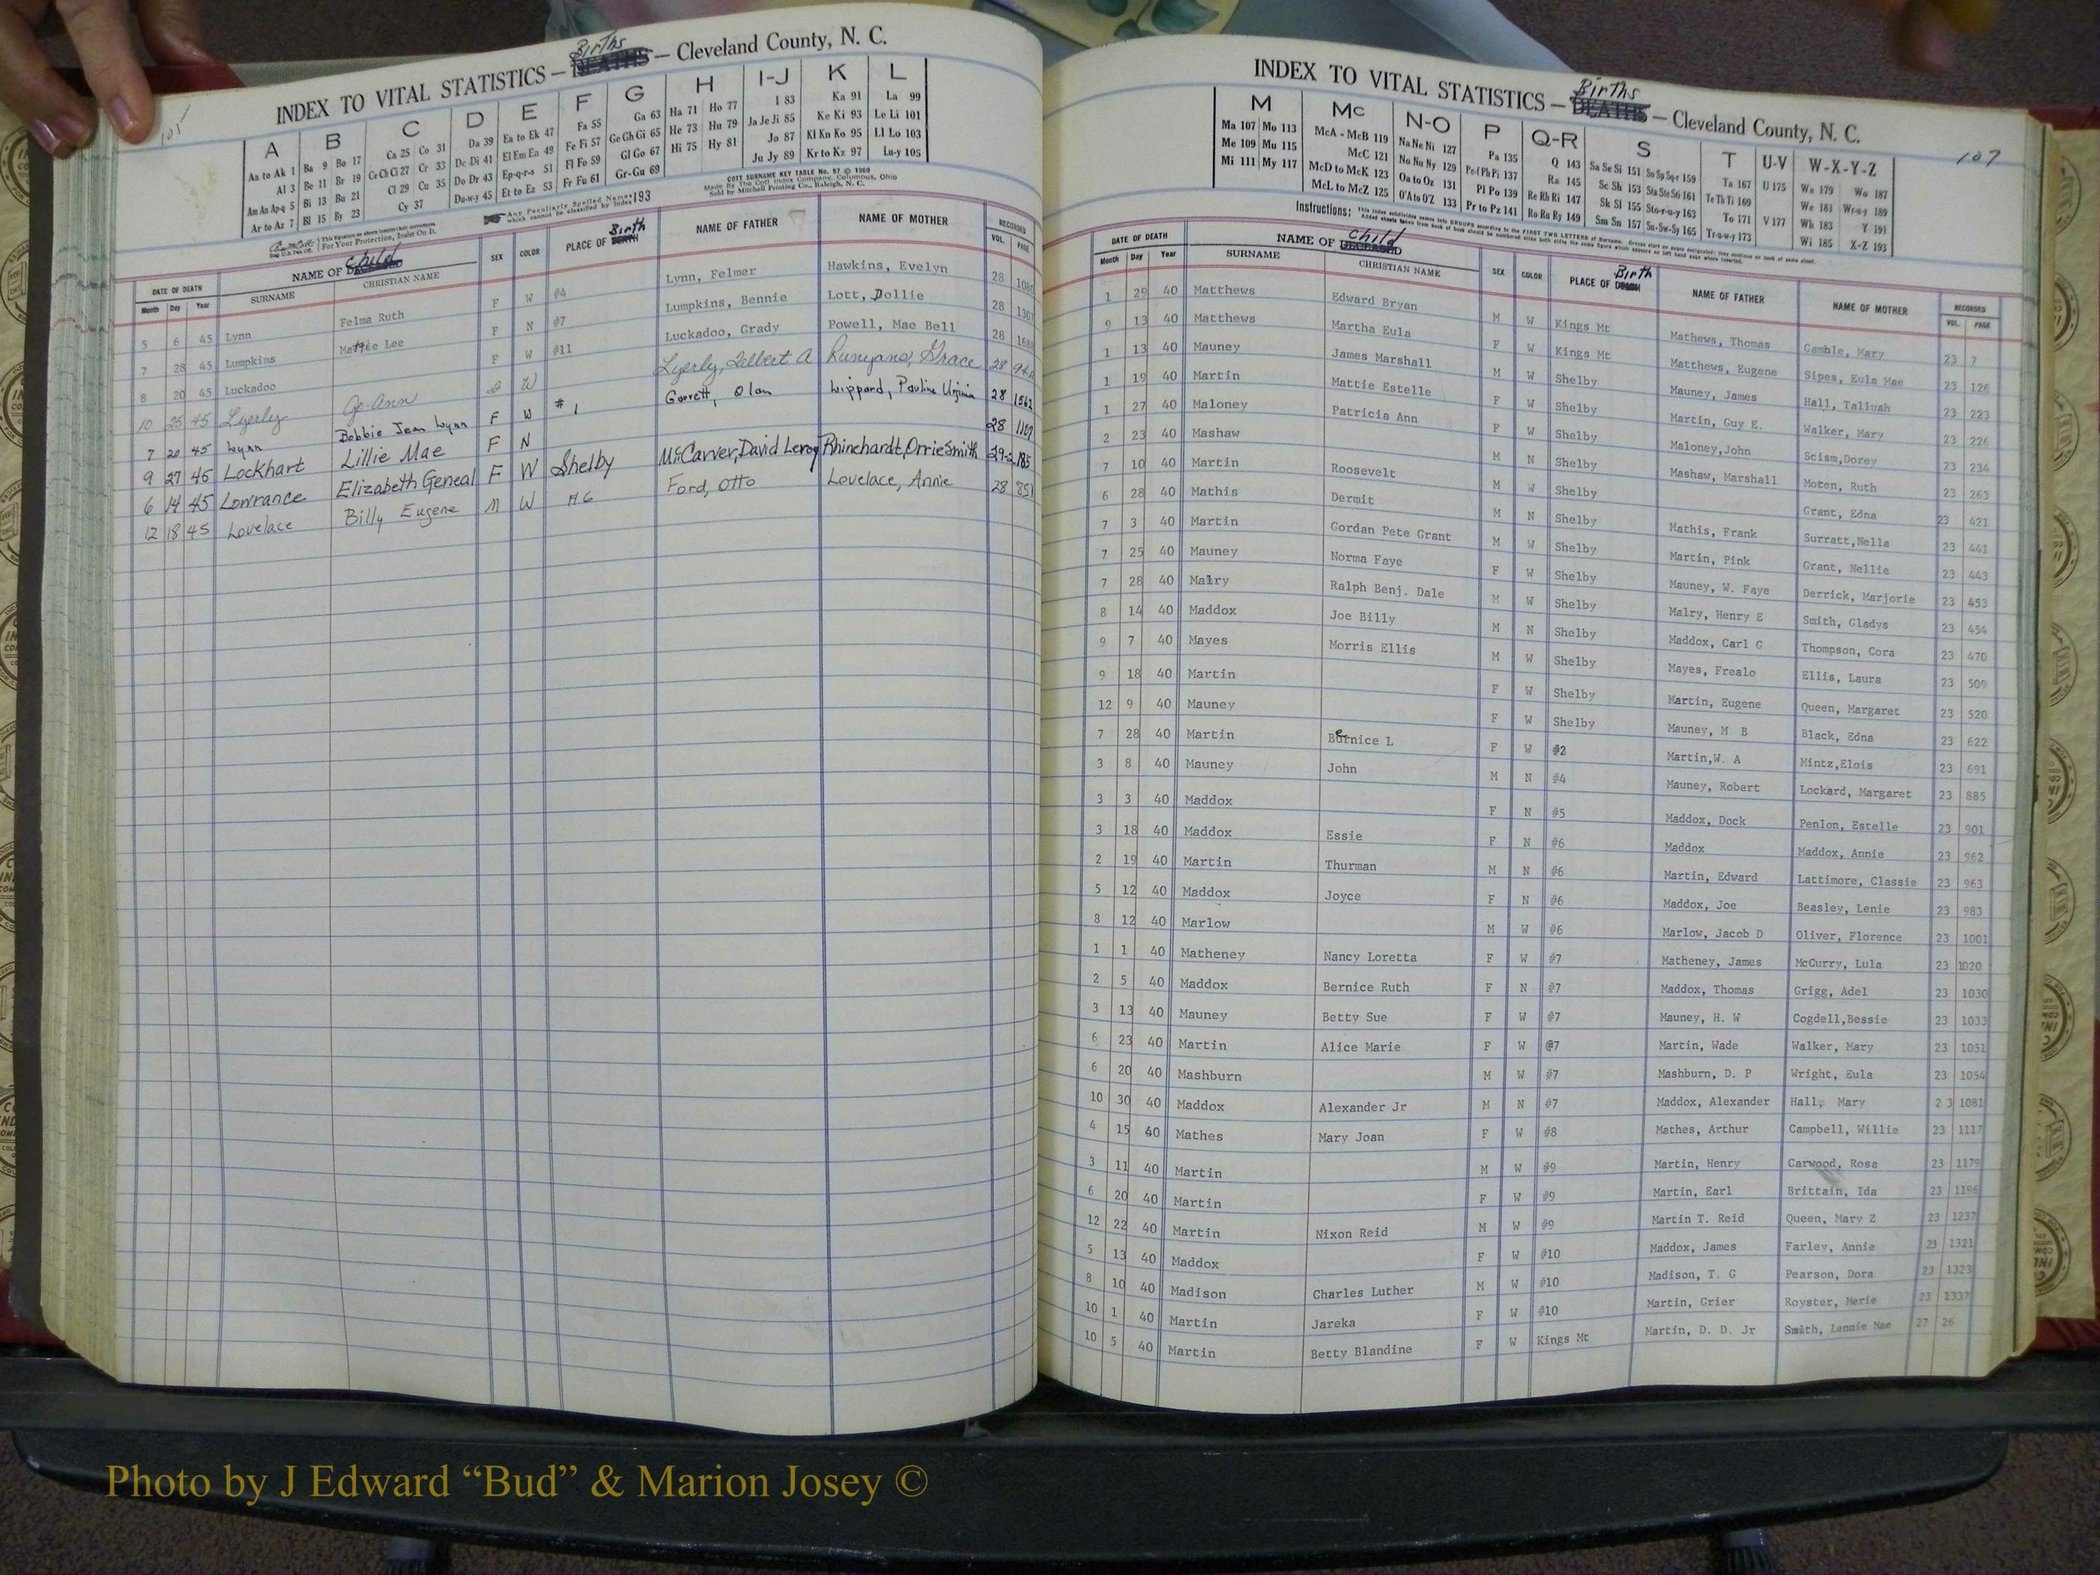 105
Births
INDEX TO VITAL STATISTICS — DEATHS — Cleveland County, N. C.
A B C D E F G H I-J K L
Aa to Ak 1 Ba 9 Bo 17 Ca 25 Co 31 Da 39 Ea to Ek 47 Fa 55 Ga 63 Ha 71 Ho 77 I 83 Ka 91 La 99
Al 3 Be 11 Br 19 Ce Ch Ci 27 Cr 33 De Di 41 El Em En 49 Fe Fi 57 Ge Gh Gi 65 He 73 Hu 79 Ja Je Ji 85 Ke Ki 93 Le Li 101
Am An Ap-q 5 Bi 13 Bu 21 Cl 29 Cu 35 Do Dr 43 Ep-q-r-s 51 Fl Fo 59 Gl Go 67 Hi 75 Hy 81 Jo 87 Kl Kn Ko 95 Ll Lo 103
Ar to Az 7 Bl 15 By 23 Cy 37 Du-w-y 45 Et to Ez 53 Fr Fu 61 Gr-Gu 69 Ju Jy 89 Kr to Kz 97 Lu-y 105
Any Peculiarly Spelled Names which cannot be classified by Index 193
COTT SURNAME KEY TABLE No. 07 © 1960
Made By The Cott Index Company, Columbus, Ohio
Sold by Mitchell Printing Co., Raleigh, N. C.
For Your Protection, Insist On It.
DATE OF DEATH NAME OF DECEASED child SEX COLOR PLACE OF DEATH Birth NAME OF FATHER NAME OF MOTHER RECORDED
Month Day Year SURNAME CHRISTIAN NAME VOL. PAGE
5 6 45 Lynn Felma Ruth F W #4 Lynn, Felmer Hawkins, Evelyn 28 1080
7 28 45 Lumpkins Mattie Lee F N #7 Lumpkins, Bennie Lott, Dollie 28 1307
8 20 45 Luckadoo F W #11 Luckadoo, Grady Powell, Mae Bell 28 1688
10 25 45 Lyerly Jo Ann W Lyerly, Lelbert A Runyans, Grace 28
7 20 45 Lynn Bobbie Jean Lynn F W #1 Garrett, Olan Lippard, Pauline Virginia 28 1562
9 27 45 Lockhart Lillie Mae F N 28 1107
6 14 45 Lowrance Elizabeth Geneal F W Shelby McCarver, David Leroy Rhinehardt, Orrie Smith 29-2 185
12 18 45 Lovelace Billy Eugene M W #6 Ford, Otto Lovelace, Annie 28 851
107
Births
INDEX TO VITAL STATISTICS — DEATHS — Cleveland County, N. C.
M Mc N-O P Q-R S T U-V W-X-Y-Z
Ma 107 Mo 113 McA - McB 119 Na Ne Ni 127 Pa 135 Q 143 Sa Se Si 151 So Sp Sq-r 159 Ta 167 U 175 Wa 179 Wo 187
Me 109 Mu 115 McC 121 No Nu Ny 129 Pe-f Ph Pi 137 Ra 145 Sc Sh 153 Sta Ste Sti 161 Te Th Ti 169 We 181 Wr-u-y 189
Mi 111 My 117 McD to McK 123 Oa to Oz 131 Pl Po 139 Re Rh Ri 147 Sk Sl 155 Sto-r-u-y 163 To 171 V 177 Wh 183 Y 191
McL to McZ 125 O'A to O'Z 133 Pr to Pz 141 Ro Ru Ry 149 Sm Sn 157 Su-Sw-Sy 165 Tr-u-w-y 173 Wi 185 X-Z 193
Instructions: This index subdivides names into GROUPS according to the FIRST TWO LETTERS of Surname.
DATE OF DEATH NAME OF DECEASED child SEX COLOR PLACE OF DEATH Birth NAME OF FATHER NAME OF MOTHER RECORDED
Month Day Year SURNAME CHRISTIAN NAME VOL. PAGE
1 29 40 Matthews Edward Bryan M W Kings Mt Mathews, Thomas Gamble, Mary 23 7
9 13 40 Matthews Martha Eula F W Kings Mt Matthews, Eugene Sipes, Eula Mae 23 126
1 13 40 Mauney James Marshall M W Shelby Mauney, James Hall, Talluah 23 223
1 19 40 Martin Mattie Estelle F W Shelby Martin, Guy E. Walker, Mary 23 226
1 27 40 Maloney Patricia Ann F W Shelby Maloney,John Scism,Dorey 23 234
2 23 40 Mashaw M N Shelby Mashaw, Marshall Moten, Ruth 23 263
7 10 40 Martin Roosevelt M W Shelby Grant, Edna 23 421
6 28 40 Mathis Dermit M N Shelby Mathis, Frank Surratt,Nella 23 441
7 3 40 Martin Gordan Pete Grant M W Shelby Martin, Pink Grant, Nellie 23 443
7 25 40 Mauney Norma Faye F W Shelby Mauney, W. Faye Derrick, Marjorie 23 453
7 28 40 Malry Ralph Benj. Dale M W Shelby Malry, Henry E Smith, Gladys 23 454
8 14 40 Maddox Joe Billy M N Shelby Maddox, Carl G Thompson, Cora 23 470
9 7 40 Mayes Morris Ellis M W Shelby Mayes, Frealo Ellis, Laura 23 509
9 18 40 Martin F W Shelby Martin, Eugene Queen, Margaret 23 520
12 9 40 Mauney F W Shelby Mauney, M B Black, Edna 23 622
7 28 40 Martin Bernice L F W #2 Martin,W. A Mintz,Elois 23 691
3 8 40 Mauney John M N #4 Mauney, Robert Lockard, Margaret 23 885
3 3 40 Maddox F N #5 Maddox, Dock Penlon, Estelle 23 901
3 18 40 Maddox Essie F N #6 Maddox Maddox, Annie 23 962
2 19 40 Martin Thurman M N #6 Martin, Edward Lattimore, Classie 23 963
5 12 40 Maddox Joyce F N #6 Maddox, Joe Beasley, Lenie 23 983
8 12 40 Marlow M W #6 Marlow, Jacob D Oliver, Florence 23 1001
1 1 40 Matheney Nancy Loretta F W #7 Matheney, James McCurry, Lula 23 1020
2 5 40 Maddox Bernice Ruth F N #7 Maddox, Thomas Grigg, Adel 23 1030
3 13 40 Mauney Betty Sue F W #7 Mauney, H. W Cogdell,Bessie 23 1033
6 23 40 Martin Alice Marie F W @7 Martin, Wade Walker, Mary 23 1051
6 20 40 Mashburn M W #7 Mashburn, D. P Wright, Eula 23 1054
10 30 40 Maddox Alexander Jr M N #7 Maddox, Alexander Hall, Mary 2 3 1081
4 15 40 Mathes Mary Joan F W #8 Mathes, Arthur Campbell, Willie 23 1117
3 11 40 Martin M W #9 Martin, Henry Carwood, Rosa 23 1179
6 20 40 Martin F W #9 Martin, Earl Brittain, Ida 23 1196
12 22 40 Martin Nixon Reid M W #9 Martin T. Reid Queen, Mary Z 23 1237
5 13 40 Maddox F W #10 Maddox, James Farley, Annie 23 1321
8 10 40 Madison Charles Luther M W #10 Madison, T. G Pearson, Dora 23 1323
10 1 40 Martin Jareka F W #10 Martin, Grier Royster, Merie 23 1337
10 5 40 Martin Betty Blandine F W Kings Mt Martin, D. D. Jr Smith, Lennie Mae 27 26
Photo by J Edward “Bud” & Marion Josey ©